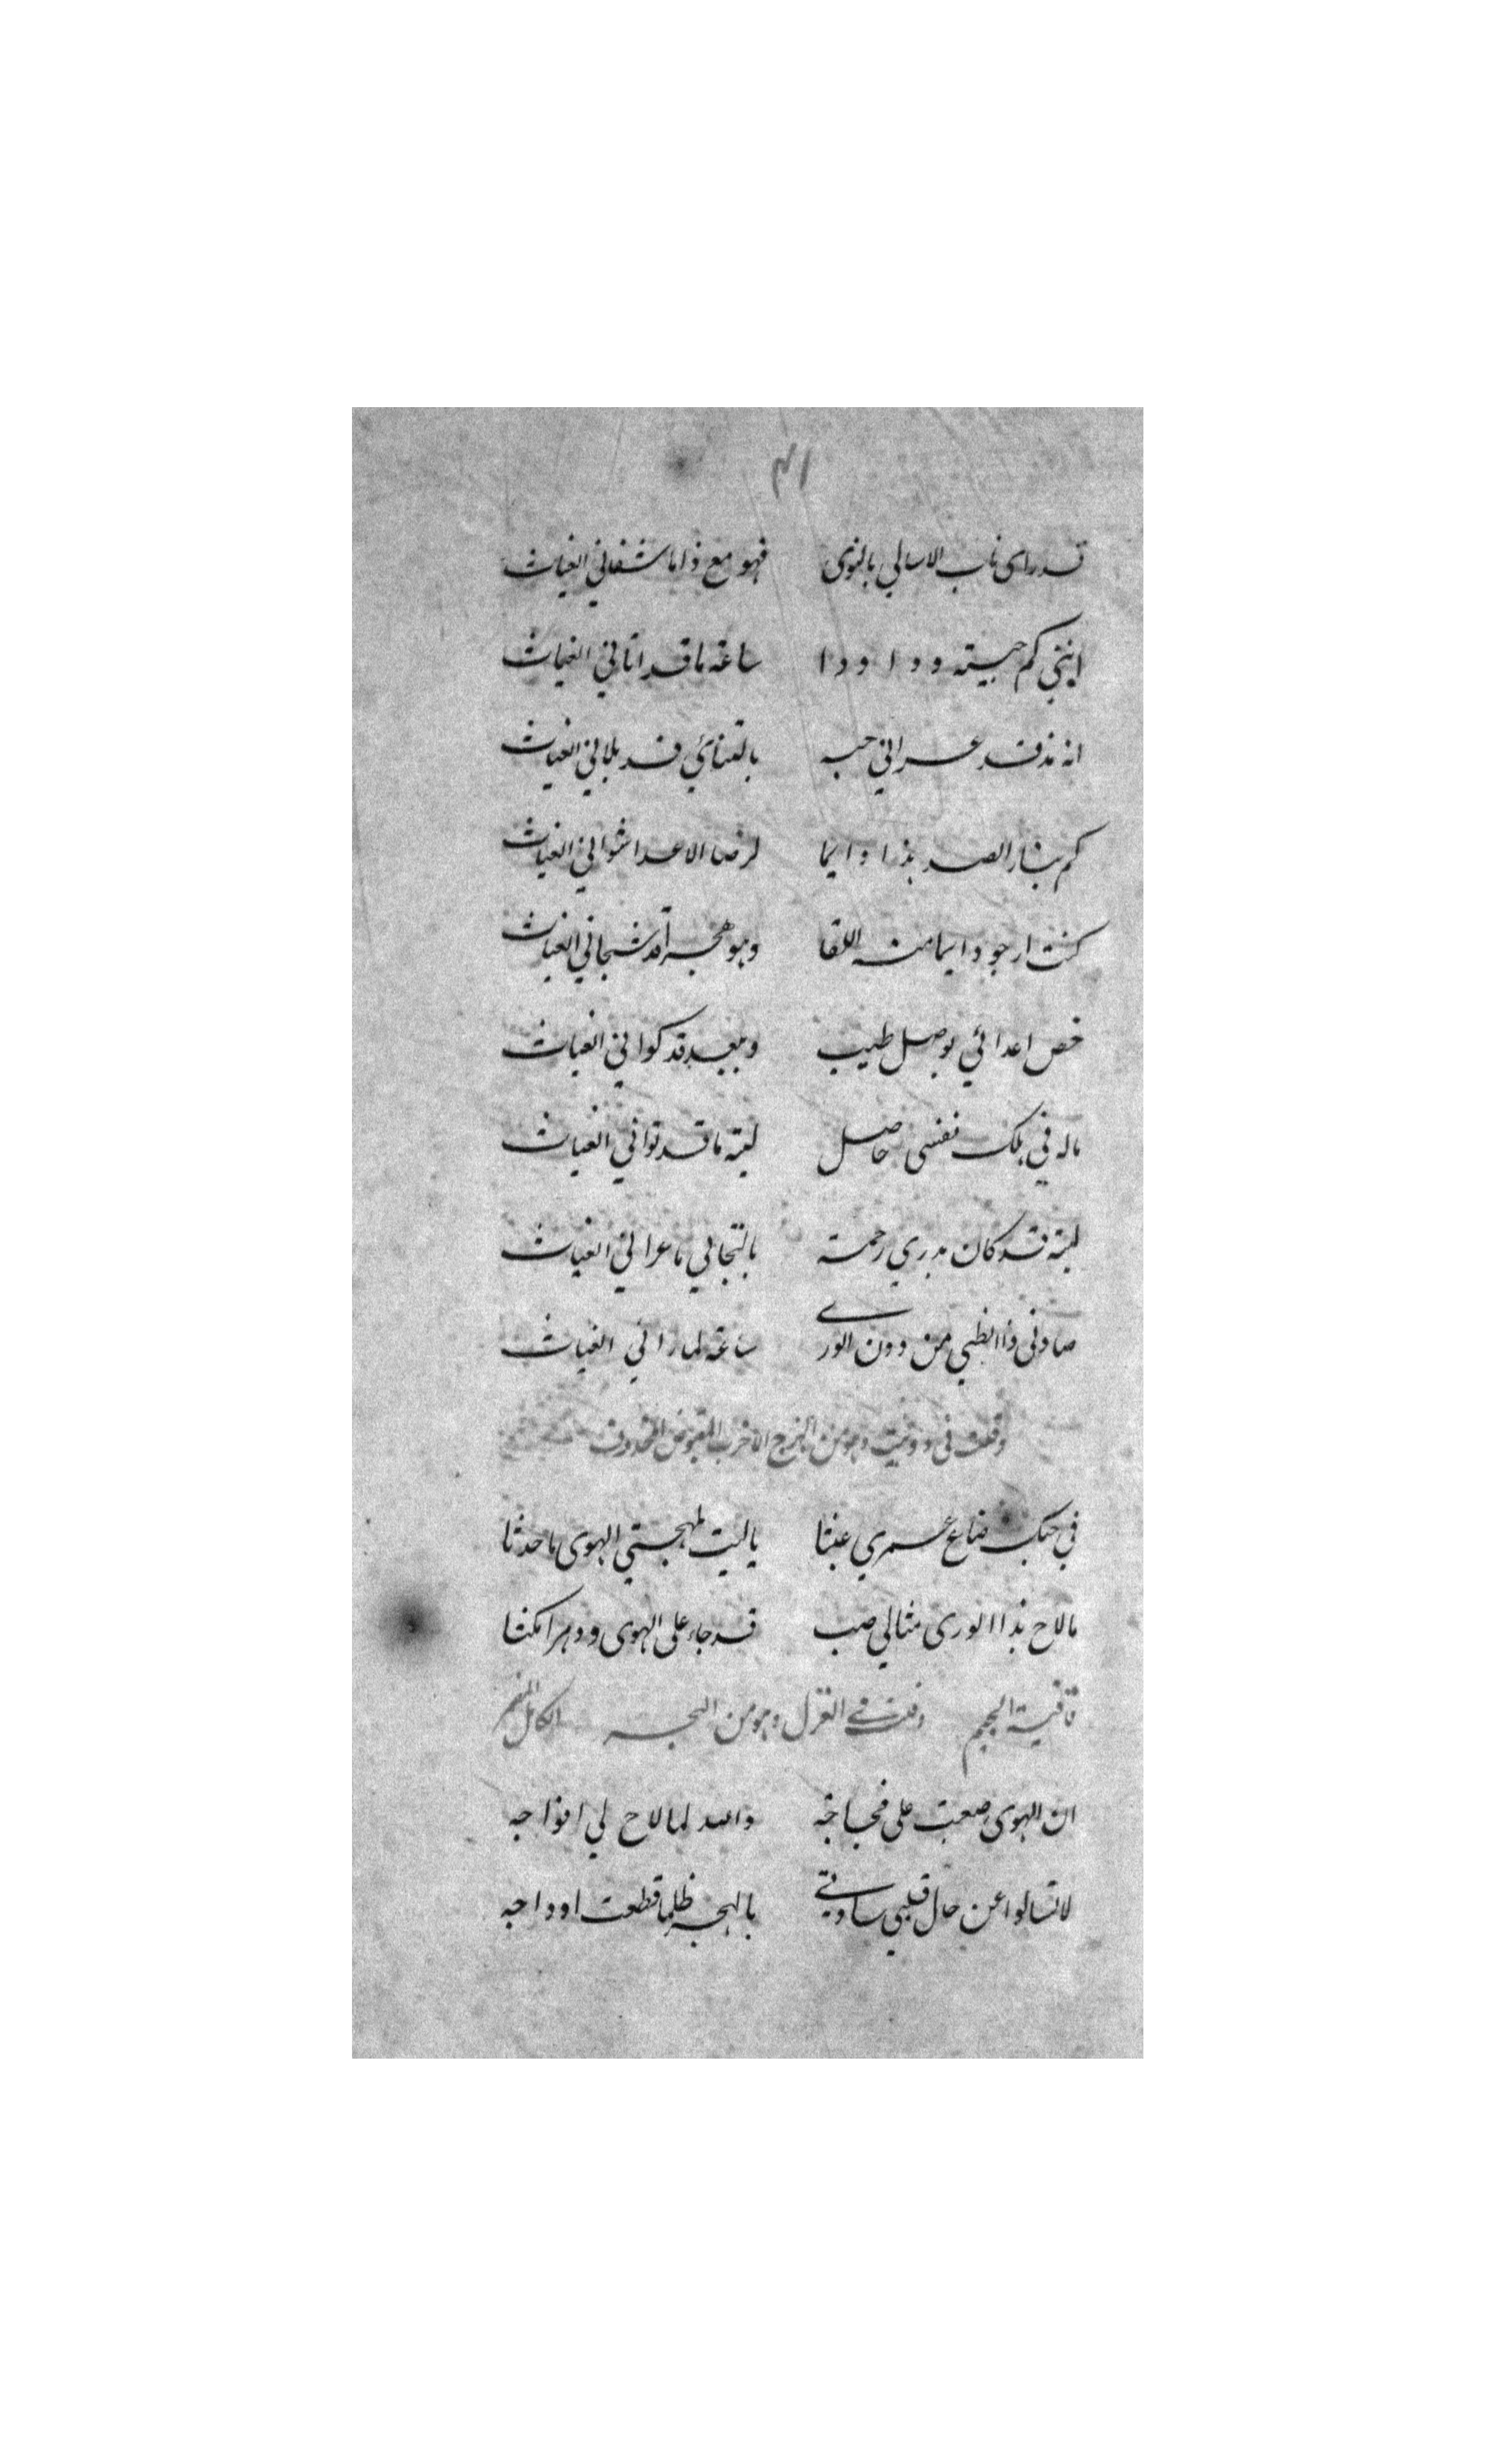 ٤١
قد رای ناب الاسالي بالنوی فهو مع ذا ما شفاني الغياث
انني كم حبيته ودا ودا ساعة ما قد اتاني الغياث
انه مذ قد عراني حبه بالتنائي قد بلاني الغياث
كم بنار الصد هذا دايما لرضا الاعدا شواني الغياث
كنت ارجو دايما منه اللقا وهو هجرا قد شجاني الغياث
خص اعدائي بوصل طيب وببعد قد كواني الغياث
ماله في هلك نفسی حاصل ليته ما قد توانی الغياث
ليته قد كان يدري رحمة بالتجافي ما عراني الغياث
صادنی ذا الظبي من دون الوری ساعة لما رائي الغياث
وقلت في دوبيت وهو من الهزج الاخرب المقبوض المحذوف
في حبك ضاع عمري عبثا ياليت لمهجتي الهوی ما حدثا
مالاح بذا الوری مثالي صب قد جاء علی الهوی ودهرا مكثا
قافية الجيم وقلت في الغزل وهو من البحر الكامل
ان الهوی صعبت علی فجاجه والله لما لاح لي افواجه
لا تسالوا عن حال قلبي سادتي بالهجر ظلما قطعت اوداجه